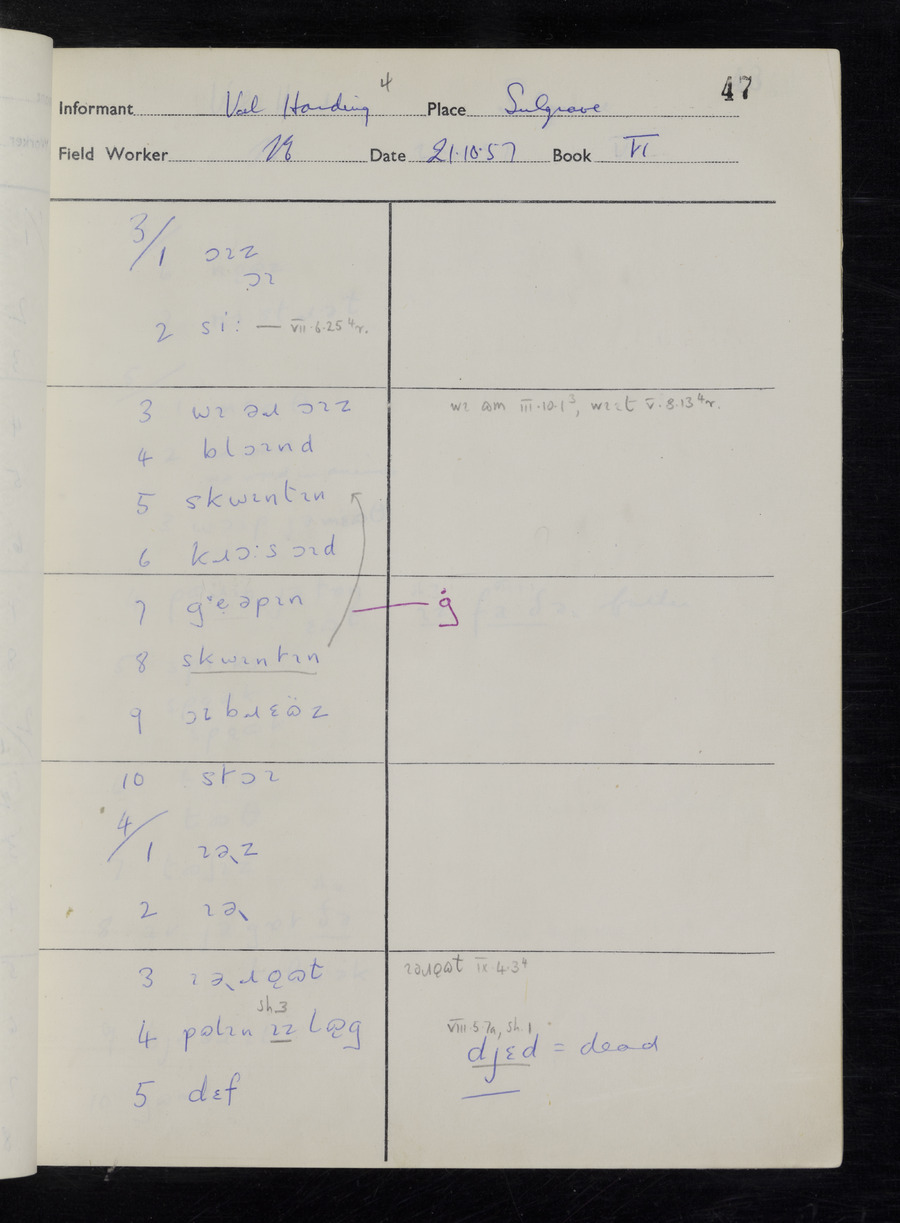 4
47
Informant Val Harding Place Sulgrave
Field Worker Date 21.10.57 Book VI
3/1 ɔɪz
ɔɪ
2 si: — VII.6.25 4r.
3 wɪ əɹ ɔɪz
wɪ ɷm III.10.1 3, wɪ:t V.8.13 4r.
4 blɔɪnd
5 skwɪntɪn
6 kɹɔ:s ɔɪd
7 gᵊẹəpɪn
ġ
8 skwɪntɪn
9 ɔɪbɹɛɷ̈z
10 stɔɪ
4/1 ɪə˞z
2 ɪə˞
3 ɪə˞ɹƍɷt
ɪəɹƍɷt IX.4.3 4
sh.3
4 pɷlɪn ɪz læg
VIII.5.7a, sh.1
djɛd = dead
5 dɛf